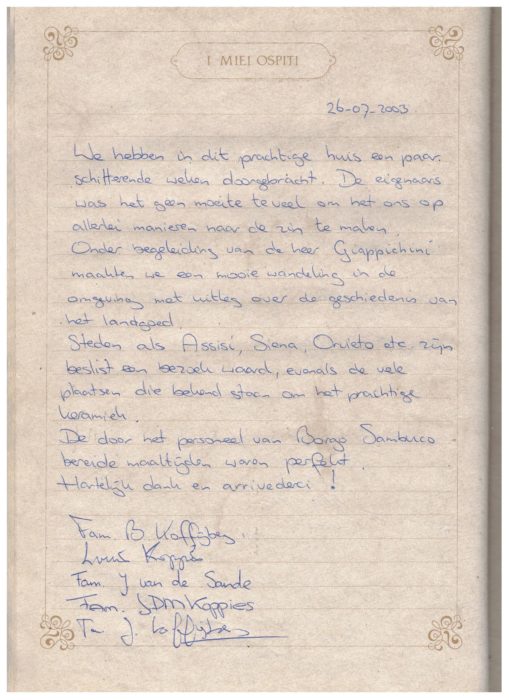 I MIEI OSPITI
26-07-2003
We hebben in dit prachtige huis een paar
schitterende weken doorgebracht. De eigenaars
was het geen moeite te veel om het ons op
allerlei manieren naar de zin te maken.
Onder begeleiding van de heer Giappichini
maakten we een mooie wandeling in de
omgeving met uitleg over de geschiedenis van
het landgoed.
Steden als Assisi, Siena, Orvieto etc. zijn
beslist een bezoek waard, evenals de vele
plaatsen die bekend staan om het prachtige
keramiek.
De door het personeel van Borgo Sambuco
bereide maaltijden waren perfekt.
Hartelijk dank en arrivederci !
Fam. B. Koffijberg
Koppies
Fam. J van de Sande
Fam. JDM Koppies
J. Koffijberg